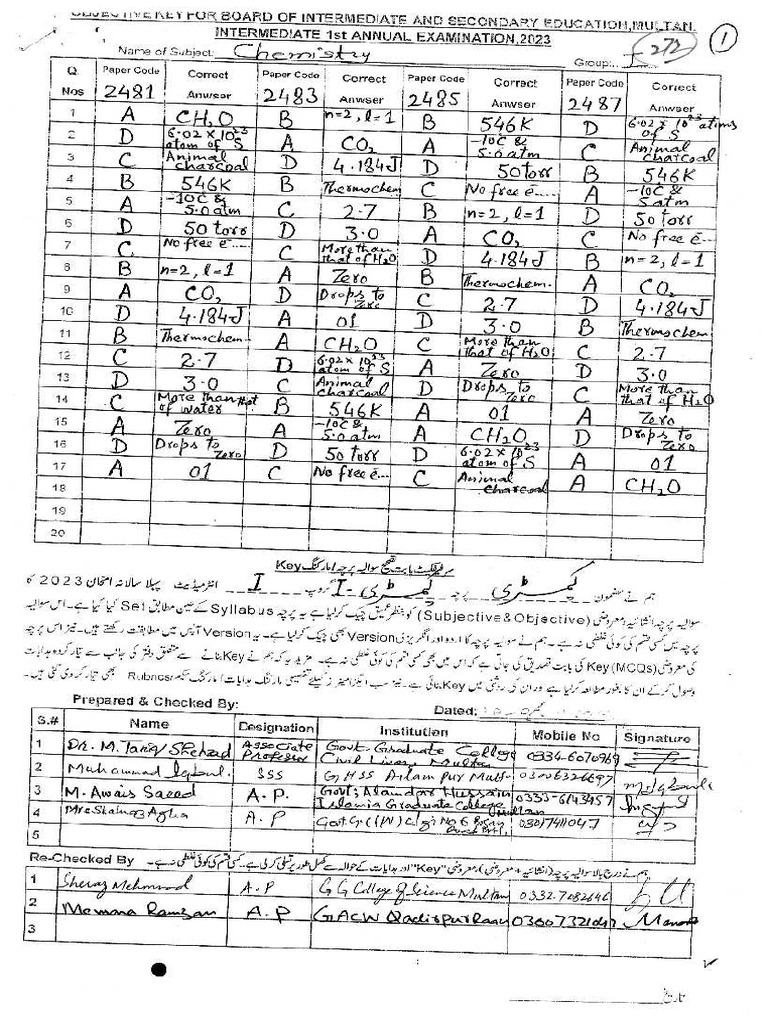 OBJECTIVE KEY FOR BOARD OF INTERMEDIATE AND SECONDARY EDUCATION, MULTAN.
INTERMEDIATE 1st ANNUAL EXAMINATION, 2023
Name of Subject: Chemistry Group: I 272 1
Q. Nos Paper Code 2481 Correct Anwser Paper Code 2483 Correct Anwser Paper Code 2485 Correct Anwser Paper Code 2487 Correct Anwser
1 A CH₂O B n=2, l=1 B 546K D 6.02 X 10²³ atoms of S
2 D 6.02 X 10²³ atom of S A CO₂ A -10C & 5.0 atm C Animal charcoal
3 C Animal charcoal D 4.184J D 50 torr B 546K
4 B 546K B Thermochem C No free e.... A -10C & 5 atm
5 A -10C & 5.0 atm C 2.7 B n=2, l=1 D 50 torr
6 D 50 torr D 3.0 A CO₂ C No free e...
7 C No free e.... C More than that of H₂O D 4.184J B n=2, l=1
8 B n=2, l=1 A Zero B Thermochem. A CO₂
9 A CO₂ D Drops to Zero C 2.7 D 4.184J
10 D 4.184J A 01 D 3.0 B Thermochem
11 B Thermochem A CH₂O C More than that of H₂O C 2.7
12 C 2.7 D 6.02 X 10²³ atom of S A Zero D 3.0
13 D 3.0 C Animal charcoal D Drops to Zero C More than that of H₂O
14 C More than that of water B 546K A 01 A Zero
15 A Zero A -10C & 5.0 atm A CH₂O D Drops to Zero
16 D Drops to Zero D 50 torr D 6.02 X 10²³ atom of S A 01
17 A 01 C No free e... C Animal charcoal A CH₂O
18
19
20
سرٹیفکیٹ بابت تصحیح سوالیہ پرچہ / مارکنگ Key
ہم نے مضمون کیمسٹری پرچہ کیمسٹری-I گروپ I انٹرمیڈیٹ پہلا سالانہ امتحان 2023 کا
سوالیہ پرچہ انشائیہ و معروضی (Subjective & Objective) کو بنظر عمیق چیک کر لیا ہے یہ پرچہ Syllabus کے عین مطابق Set کیا گیا ہے۔ اس سوالیہ
پرچہ میں کسی قسم کی کوئی غلطی نہ ہے۔ ہم نے سوالیہ پرچہ کا اردو اور انگریزی Version بھی چیک کر لیا ہے۔ یہ Version آپس میں مطابقت رکھتے ہیں۔ نیز اس پرچہ
کی معروضی (MCQs) Key کی بابت تصدیق کی جاتی ہے کہ اس میں بھی کسی قسم کی کوئی غلطی نہ ہے۔ مزید یہ کہ ہم نے Key بنانے سے متعلق دفتر کی جانب سے تیار کردہ ہدایات
وصول کر کے ان کا بغور مطالعہ کر لیا ہے اور ان کی روشنی میں Key بنائی ہے۔ نیز سب ایگزامینرز کیلئے تفصیلی مارکنگ ہدایات / مارکنگ سکیم Rubrics بھی تیار کر دی گئی ہیں۔
Prepared & Checked By: Dated:
S.# Name Designation Institution Mobile No Signature
1 Dr. M. Tariq Shehzad Associate Professor Govt. Graduate College Civil Lines, Multan 0334-6070969
2 Muhammad SSS GHSS
3 M. Awais Saeed A.P. Govt; Alamdar Hussain Islamia Graduate College Multan 0333-6143957
4 A.P
5
Re-Checked By ہم نے درج بالا سوالیہ پرچہ (انشائیہ + معروضی)، معروضی "Key" اور ہدایات کے حوالہ سے مکمل طور پر تسلی کر لی ہے۔ کسی قسم کی کوئی غلطی نہ ہے۔
1 Sheraz Mehmood A.P GG College of Science Multan 0332-7082646
2 A.P GACW Qadirpur Raan
3